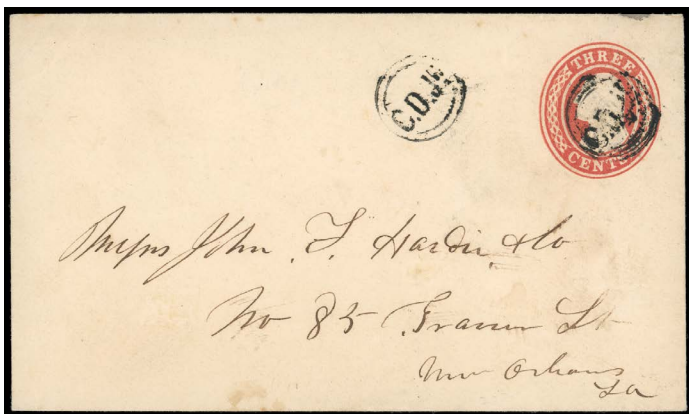 THREE
CENTS
C.D.Jr.
C.D.Jr.
Messrs John. T. Hardie & Co
No 85 Gravier St
New Orleans
La